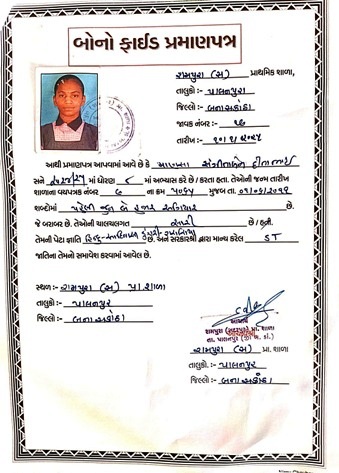 બોનો ફાઈડ પ્રમાણપત્ર
રામપુરા (સ) પ્રાથમિક શાળા,
તાલુકો :- પાલનપુર
જિલ્લો :- બનાસકાંઠા
જાવક નંબર :- ૧૭
તારીખ :-
આથી પ્રમાણપત્ર આપવામાં આવે છે કે
સને માં ધોરણ ૮ માં અભ્યાસ કરે છે / કરતા હતા. તેઓની જન્મ તારીખ
શાળાના વયપત્રક નંબર ૭ ના ક્રમ ૫૦૬૫ મુજબ તા. ૦૧/૦૬/૨૦૧૧
શબ્દોમાં પહેલી જુન બે હજાર અગિયાર છે.
જે બરાબર છે. તેઓની ચાલચલગત સારી છે / હતી.
તેમની પેટા જ્ઞાતિ હિન્દુ છે. અને સરકારશ્રી દ્વારા માન્ય કરેલ ST
જાતિના તેમનો સમાવેશ કરવામાં આવેલ છે.
સ્થળ :- રામપુરા (સ) પ્રા. શાળા
તાલુકો :- પાલનપુર
જિલ્લો :- બનાસકાંઠા
આચાર્ય
રામપુરા પ્રા. શાળા
તા. પાલનપુર (જી. બ. કાં.)
રામપુરા (સ) પ્રા. શાળા
તાલુકો :- પાલનપુર
જિલ્લો :- બનાસકાંઠા